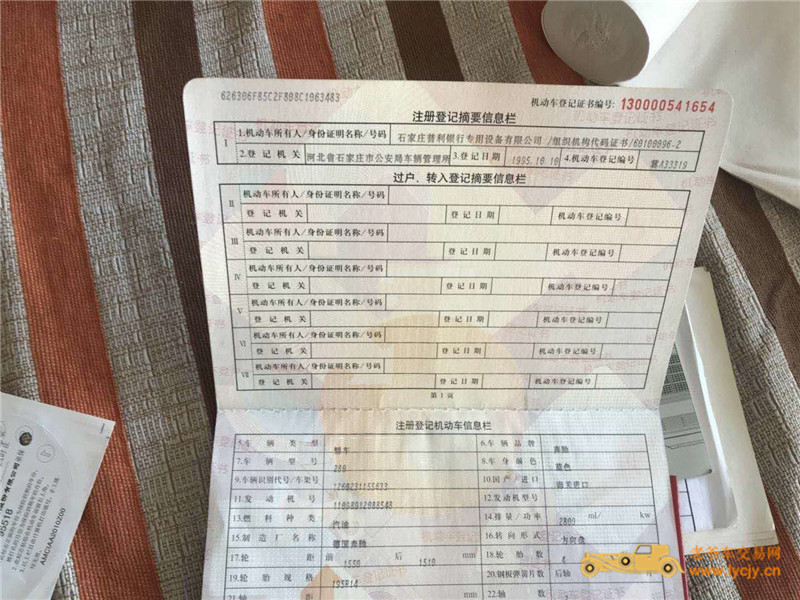 626306F85C2F808C1063483
机动车登记证书编号: 130000541654
注册登记摘要信息栏
I 1.机动车所有人/身份证明名称/号码 石家庄普利银行专用设备有限公司 /组织机构代码证书/60100096-2
2.登记机关 河北省石家庄市公安局车辆管理所 3.登记日期 1995.10.10 4.机动车登记编号 冀A33319
过户、转入登记摘要信息栏
II 机动车所有人/身份证明名称/号码
登记机关 登记日期 机动车登记编号
III 机动车所有人/身份证明名称/号码
登记机关 登记日期 机动车登记编号
IV 机动车所有人/身份证明名称/号码
登记机关 登记日期 机动车登记编号
V 机动车所有人/身份证明名称/号码
登记机关 登记日期 机动车登记编号
VI 机动车所有人/身份证明名称/号码
登记机关 登记日期 机动车登记编号
VII 机动车所有人/身份证明名称/号码
登记机关 登记日期 机动车登记编号
第1页
注册登记机动车信息栏
5.车辆类型 轿车 6.车辆品牌 奔驰
7.车辆型号 280 8.车身颜色 蓝色
9.车辆识别代号/车架号 1260231155633 10.国产/进口 海关进口
11.发动机号 11098012088548 12.发动机型号
13.燃料种类 汽油 14.排量/功率 2800 ml/ kw
15.制造厂名称 德国奔驰 16.转向形式 方向盘
17.轮距 前 1550 后 1510 mm 18.轮胎数 4
19.轮胎规格 195R14 20.钢板弹簧片数 后轴
mm 22.轴数
95518
AMCIAA0010Z00
老爷车交易网
www.lycjy.cn